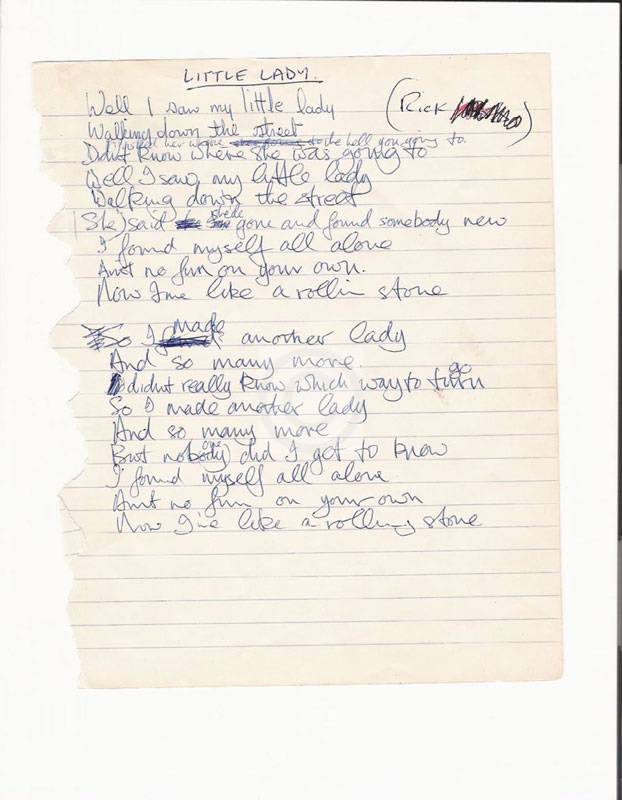 LITTLE LADY.
(RICK)
Well I saw my little lady
Walking down the street
her to the hell you going to.
Didnt know where she was going to
Well I saw my little lady
Walking down the street
(She) said shede gone and found somebody new
I found myself all alone
Aint no fun on your own.
Now Ime like a rollin stone
So I made another lady
And so many more
didnt really know which way to turn go
So I made another lady
And so many more
But nobody one did I get to know
I found myself all alone
Aint no fun on your own
Now I'me like a rolling stone